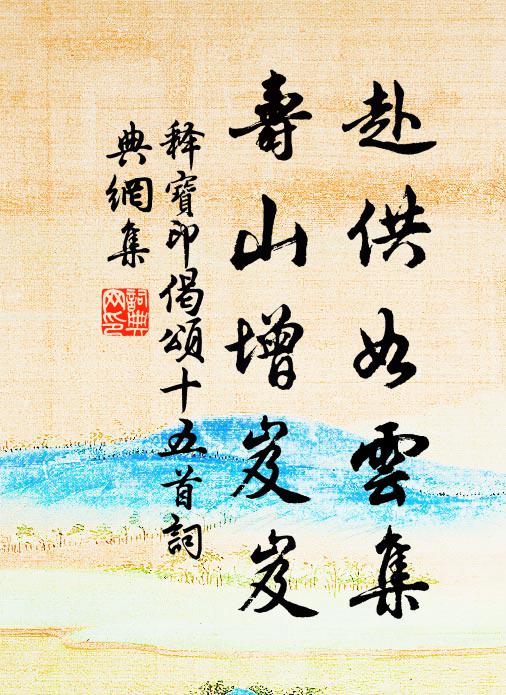 赴供如雲集
壽山增岌岌
释寶印偈頌十五首詞
典網集
詞典網印